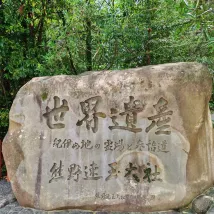 世界遺産
紀伊山地の霊場と参詣道
熊野速玉大社